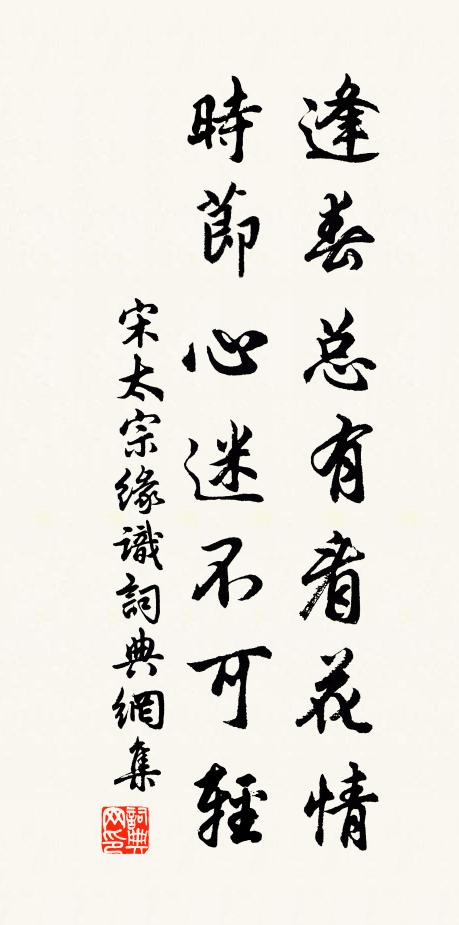 逢春总有看花情
時節心迷不可輕
宋太宗緣識詞典網集
詞典网印